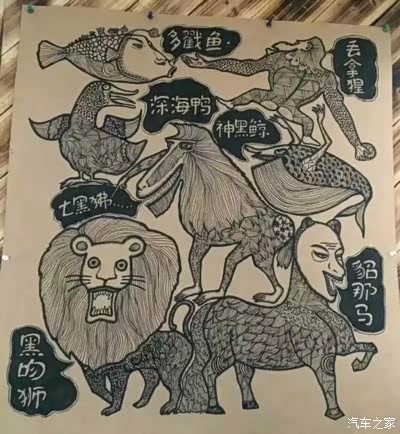 多戳鱼.
丢
猩
深海鸭
神黑鲸
七黑狒......
貂那马
黑吻狮
汽车之家